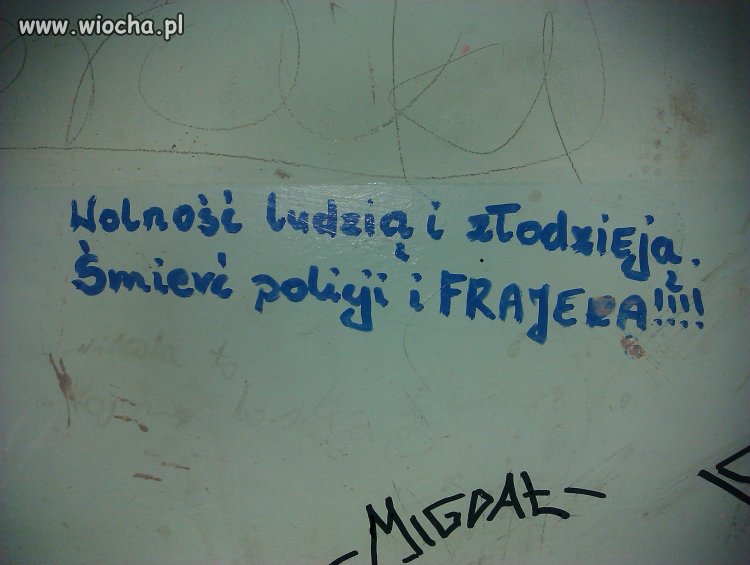 www.wiocha.pl
Wolność ludzią i złodzięją.
Śmierć policji i FRAJERĄ!!!!
-MIGDAŁ-